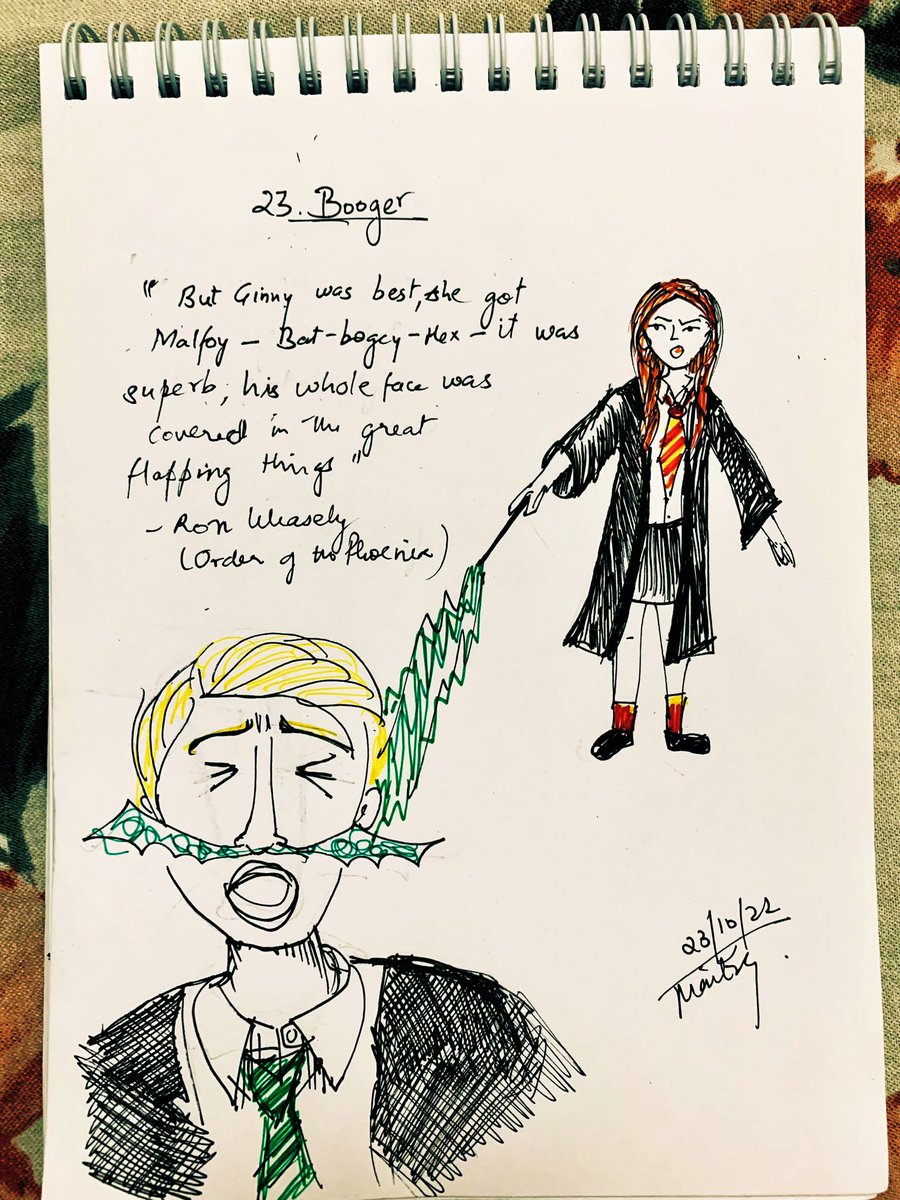 23. Booger
" But Ginny was best, she got
Malfoy - Bat-bogey-Hex - it was
superb, his whole face was
covered in the great
flapping things "
- Ron Weasely
(Order of the Phoenix)
23/10/22